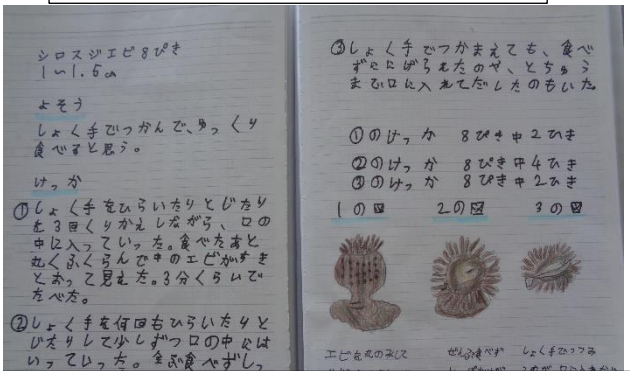 シロスジエビ8ぴき
1〜1.5㎝
よそう
しょく手でつかんで、ゆっくり
食べると思う。
けっか
①しょく手をひらいたりとじたり
を3回くりかえしながら、口の
中に入っていった。食べたあと
丸くふくらんで中のエビがすき
とおって見えた。3分くらいで
たべた。
②しょく手を何回もひらいたりと
じたりして少しずつ口の中には
いっていった。全部食べずしっ
③しょく手でつかまえても、食べ
ずににげられたのや、とちゅう
まで口に入れてだしたのもいた。
①のけっか 8ぴき中2ひき
②のけっか 8ぴき中4ひき
③のけっか 8ぴき中2ひき
1の図 2の図 3の図
エビを丸のみして ぜんぶ食べず しょく手でつつみ